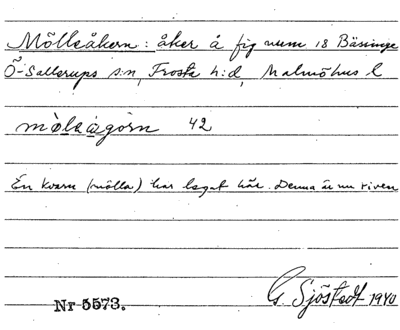 Mölleåkern: åker å fig num 18 Bäsinge
Ö-Sallerups s:n, Frosta h:d, Malmöhus l
mòleågórn 42
En kvarn (mölla) har legat här. Denna är nu riven
G. Sjöstedt 1940
Nr 5573.